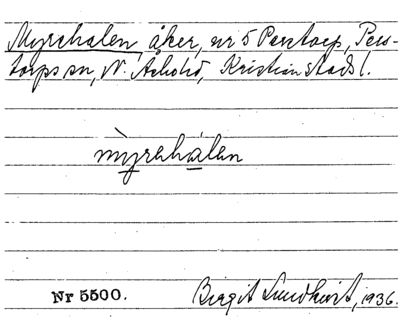 Myrehalen, åker, nr 5 Perstorp, Pers-
torps sn, N. Åsbohd, Kristianstads l.
mỳrehálen
Nr 5500. Birgit Lundkvist, 1936.